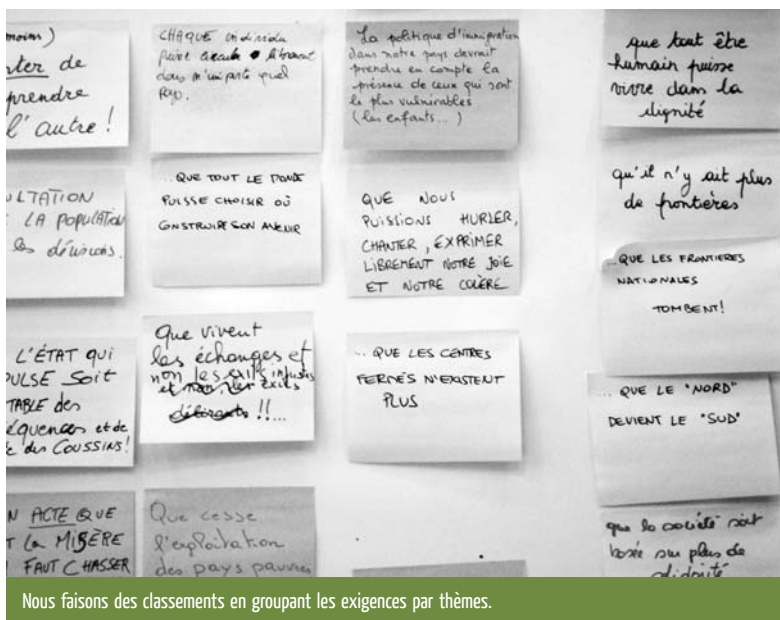 moins)
nter de
prendre
l'autre !
ULTATION
LA POPULATION
les décisions.
L'ÉTAT qui
PULSE Soit
TABLE des
séquences et de
des COUSSINS !
N ACTE QUE
T LA MISÈRE
FAUT CHASSER
CHAQUE individu
puisse circuler librement
dans n'importe quel
pays.
... QUE TOUT LE MONDE
PUISSE CHOISIR OÙ
CONSTRUIRE SON AVENIR
Que vivent
les échanges et
non les exils
et non les exils
délirants !!...
Que cesse
l'exploitation
des pays pauvres
La politique d'immigration
dans notre pays devrait
prendre en compte la
présence de ceux qui sont
le plus vulnérables
(les enfants...)
QUE NOUS
PUISSIONS HURLER,
CHANTER, EXPRIMER
LIBREMENT NOTRE JOIE
ET NOTRE COLÈRE
... QUE LES CENTRES
FERMÉS N'EXISTENT
PLUS
que tout être
humain puisse
vivre dans la
dignité
qu'il n'y ait plus
de frontières
... QUE LES FRONTIERES
NATIONALES
TOMBENT !
... QUE LE "NORD"
DEVIENT LE "SUD"
que la société soit
basée sur plus de
Nous faisons des classements en groupant les exigences par thèmes.